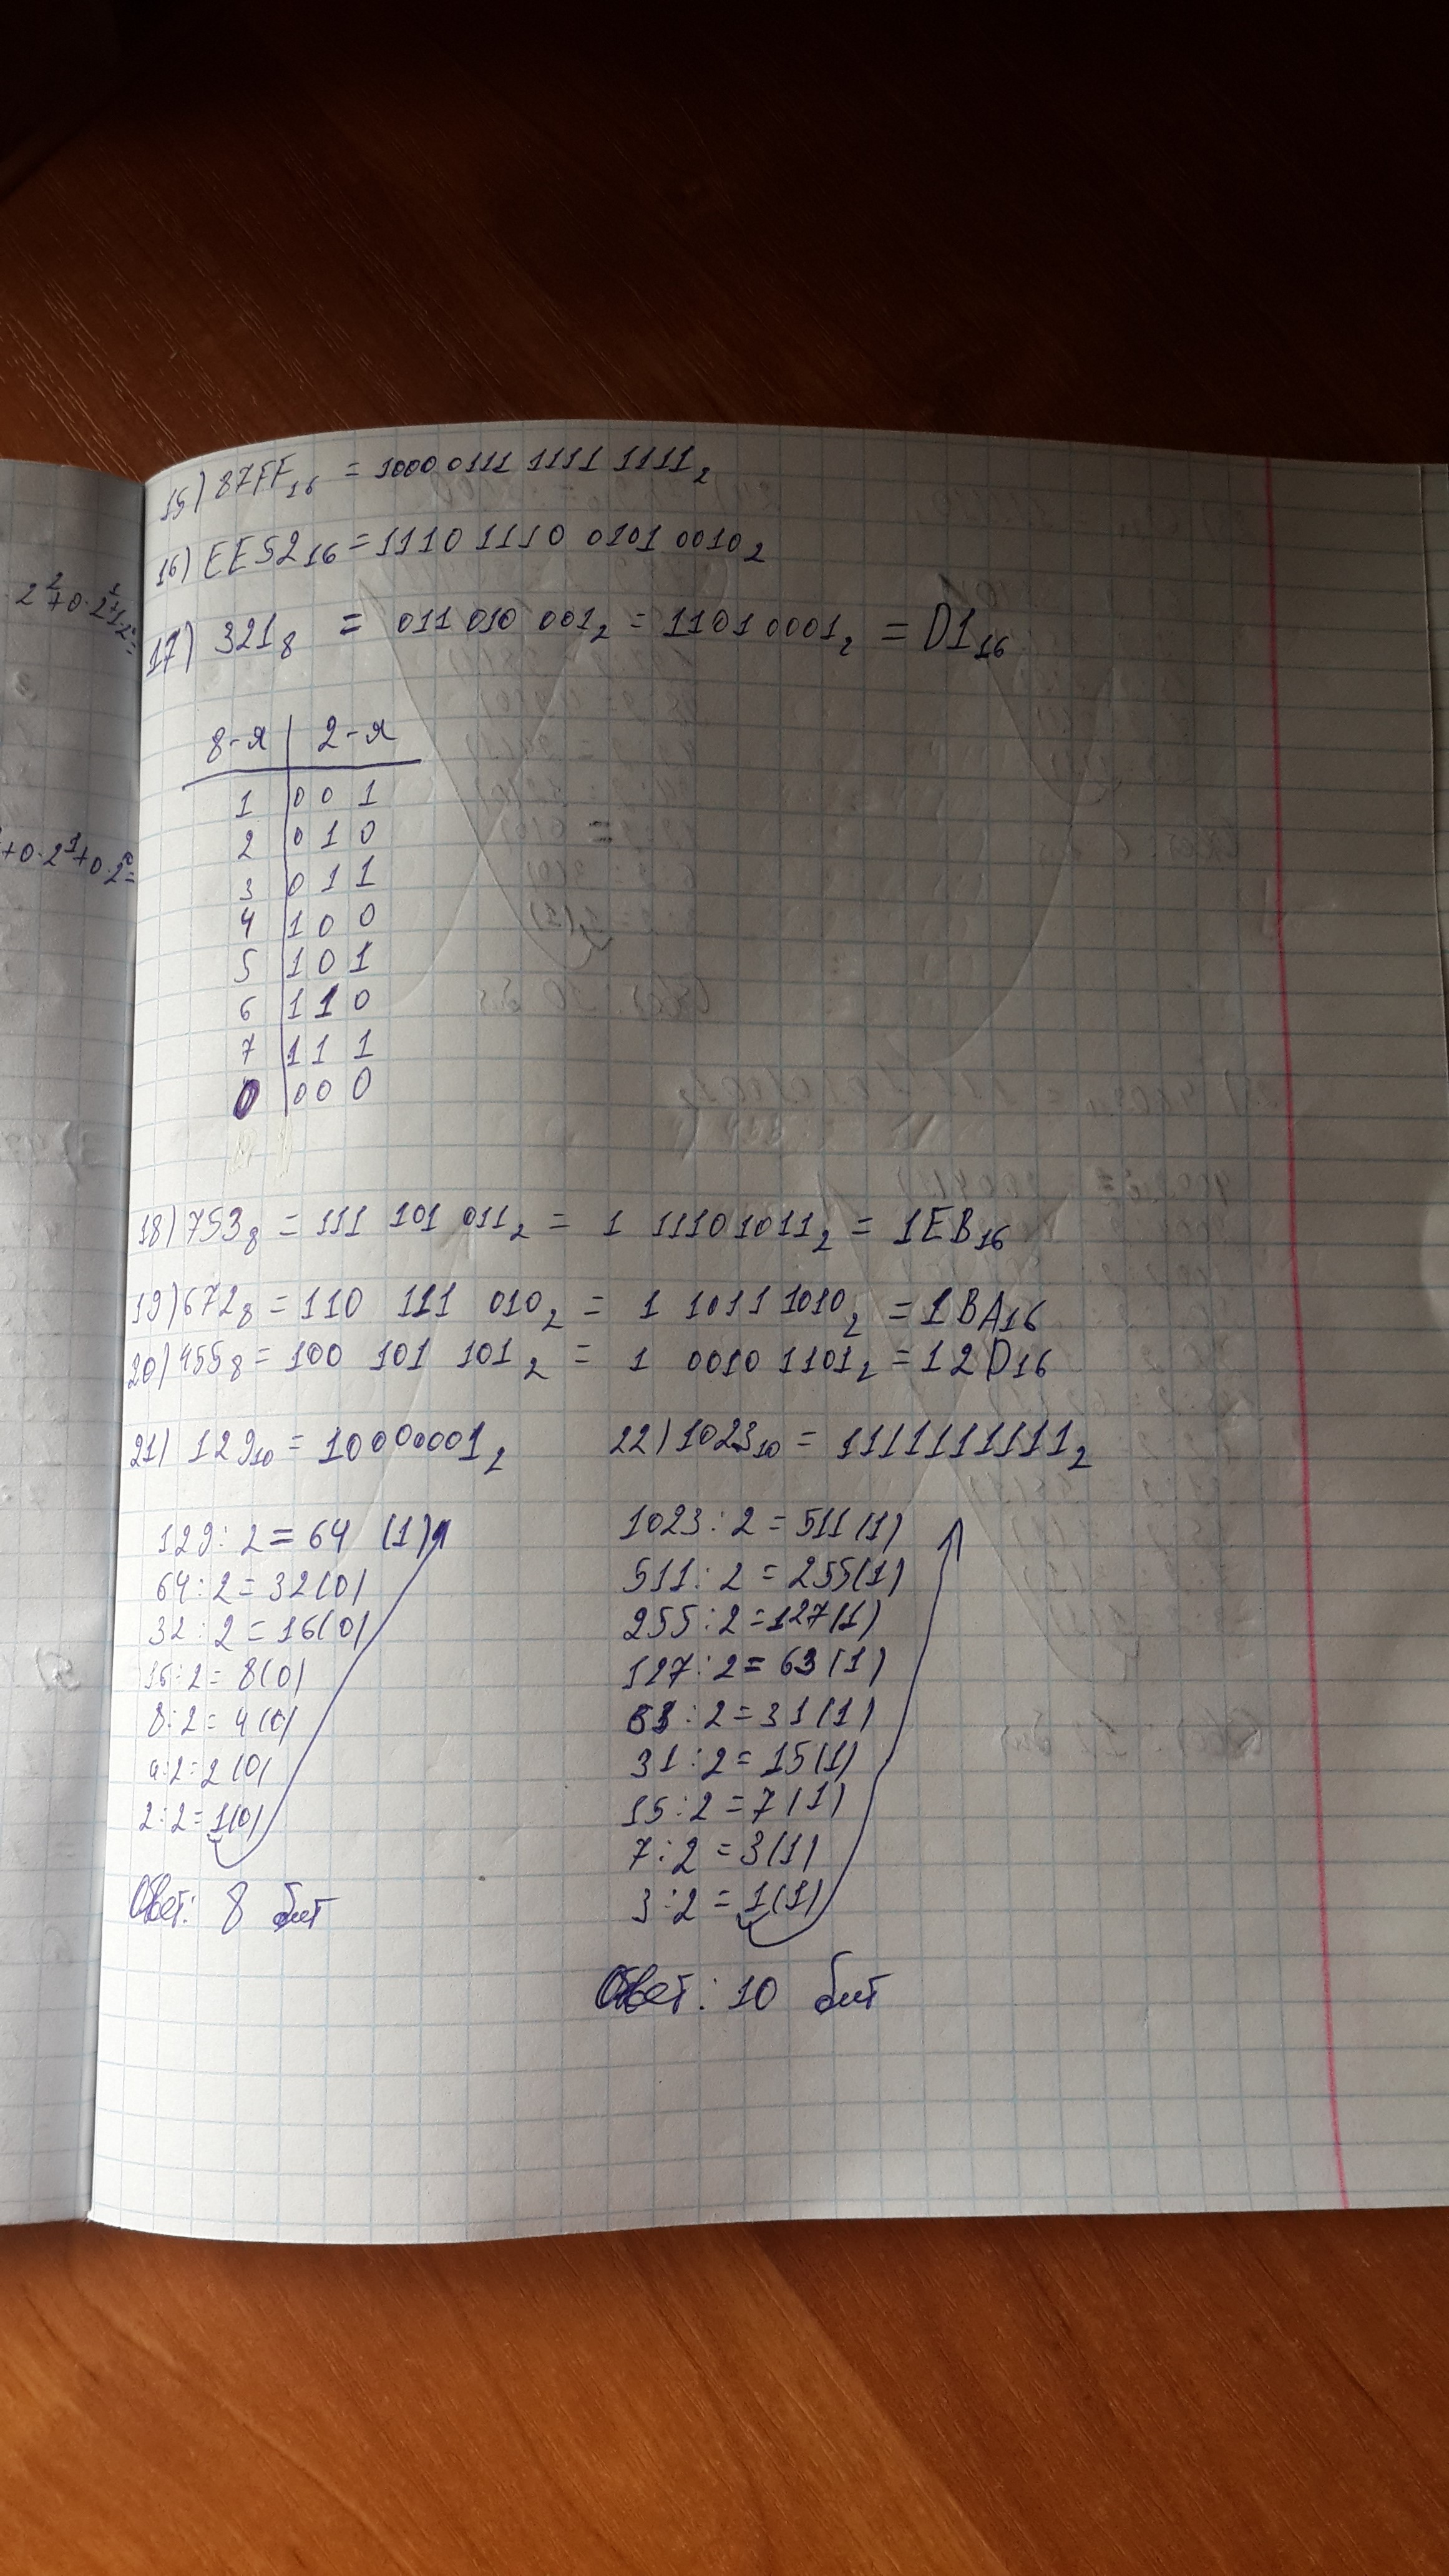 2² + 0·2¹ + 1·2⁰ =
+ 0·2¹ + 0·2⁰ =
15) 87FF₁₆ = 1000 0111 1111 1111₂
16) EE52₁₆ = 1110 1110 0101 0010₂
17) 321₈ = 011 010 001₂ = 1101 0001₂ = D1₁₆
8-я | 2-я
1 | 0 0 1
2 | 0 1 0
3 | 0 1 1
4 | 1 0 0
5 | 1 0 1
6 | 1 1 0
7 | 1 1 1
0 | 0 0 0
18) 753₈ = 111 101 011₂ = 1 1110 1011₂ = 1EB₁₆
19) 672₈ = 110 111 010₂ = 1 1011 1010₂ = 1BA₁₆
20) 455₈ = 100 101 101₂ = 1 0010 1101₂ = 12D₁₆
21) 129₁₀ = 10000001₂
129 : 2 = 64 (1)
64 : 2 = 32 (0)
32 : 2 = 16 (0)
16 : 2 = 8 (0)
8 : 2 = 4 (0)
4 : 2 = 2 (0)
2 : 2 = 1 (0)
Ответ: 8 бит
22) 1023₁₀ = 1111111111₂
1023 : 2 = 511 (1)
511 : 2 = 255 (1)
255 : 2 = 127 (1)
127 : 2 = 63 (1)
63 : 2 = 31 (1)
31 : 2 = 15 (1)
15 : 2 = 7 (1)
7 : 2 = 3 (1)
3 : 2 = 1 (1)
Ответ: 10 бит